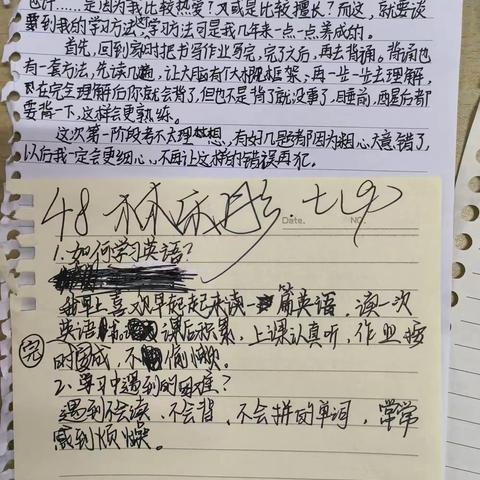 也许……是因为我比较热爱？又或是比较擅长？而这，就要谈
到我的学习方法这学习方法可是我几年来一点一点养成的。
首先，回到家时把书写作业写完，完了之后，再去背诵。背诵也
有一套方法，先读几遍，让大脑有个大概框架，再一步一步去理解，
在完全理解后你就会背了，但也不是背了就没事了，睡前，两星后都
要背一下，这样会更熟练。
这次第一阶段考不太理想，有好几题都因为粗心大意错了，
以后我一定会更细心，不再让这样的错误再犯。
48 林 彤 七(9)
Date. NO.
1.如何学习英语？
我早上喜欢早起起来读一篇英语，读一次
英语 课后积累，上课认真听，作业按
时完成，不偷懒。
完
2.学习中遇到的困难？
遇到不会读、不会背、不会拼的单词，常常
感到烦燥。